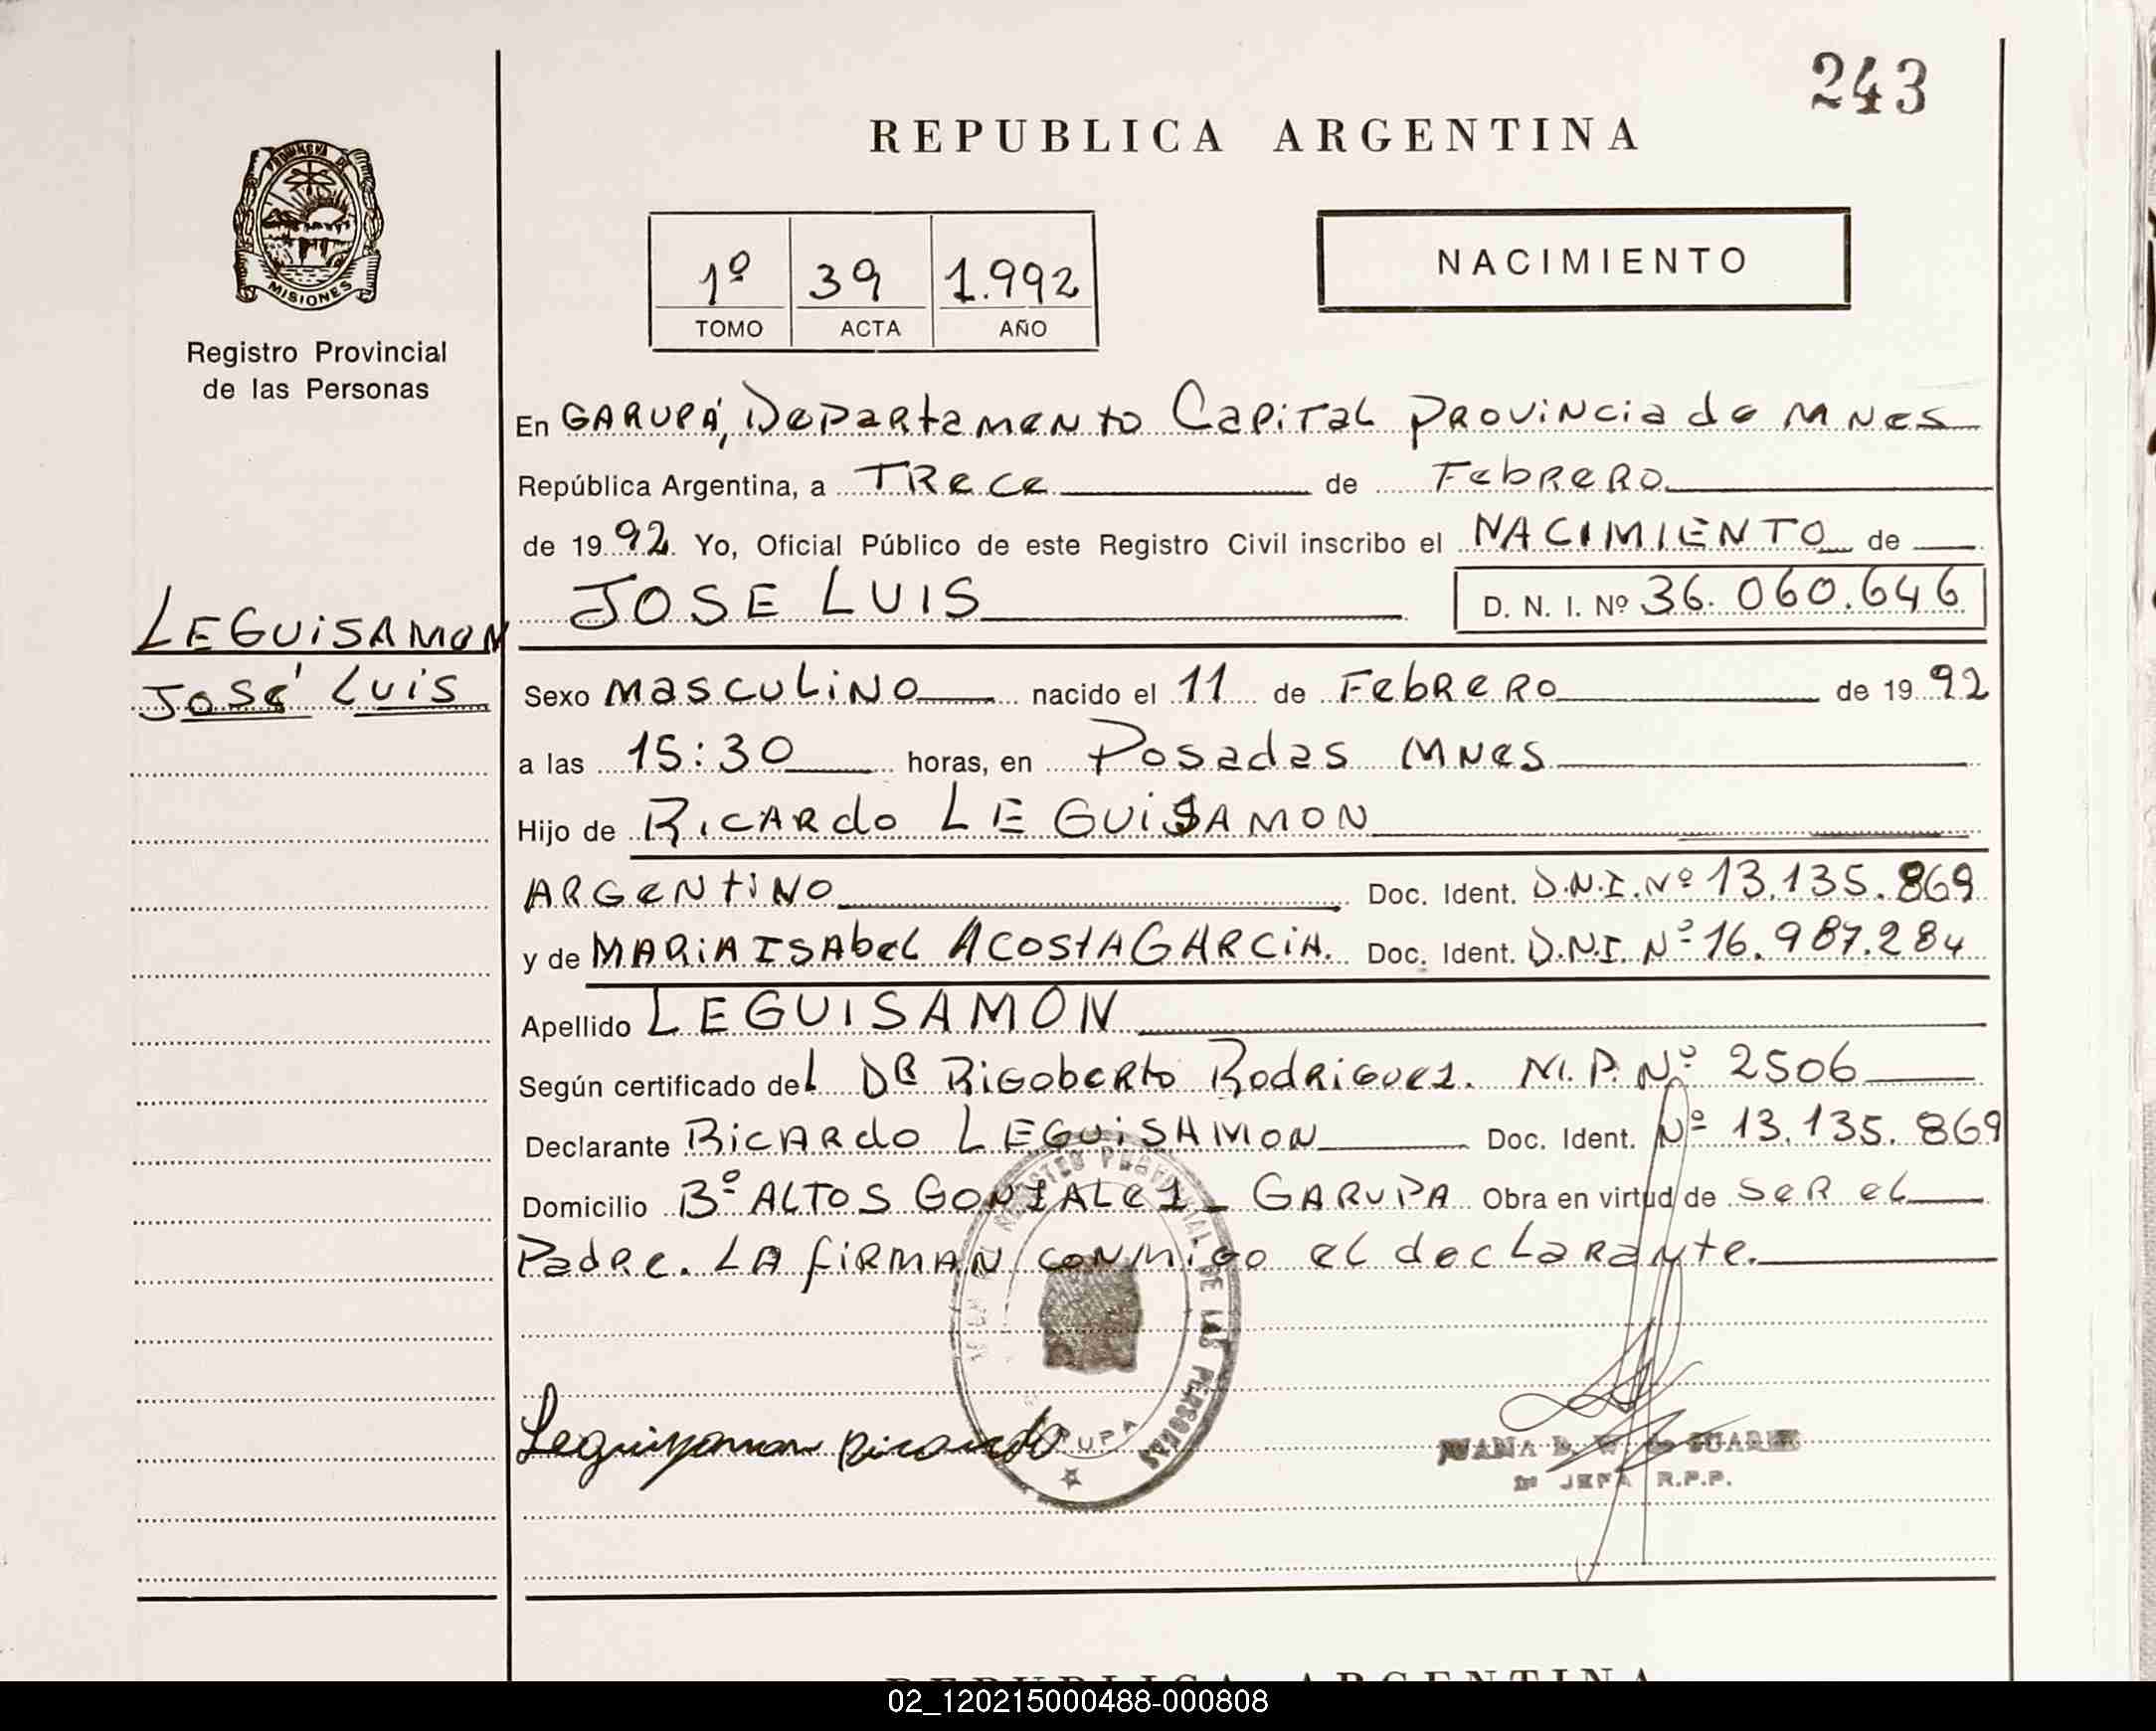 243
REPUBLICA ARGENTINA
PROVINCIA DE
MISIONES
Registro Provincial
de las Personas
1º 39 1.992
TOMO ACTA AÑO
NACIMIENTO
En GARUPÁ, Departamento Capital Provincia de MNes
República Argentina, a Trece de Febrero
de 1992. Yo, Oficial Público de este Registro Civil inscribo el NACIMIENTO de
JOSE LUIS D. N. I. Nº 36.060.646
LEGUISAMON
José Luis
Sexo masculino nacido el 11 de Febrero de 1992
a las 15:30 horas, en Posadas MNes
Hijo de Ricardo LEGUISAMON
ARGENTINO Doc. Ident. D.N.I. Nº 13.135.869
y de MARIA ISAbel ACOSTA GARCIA. Doc. Ident. D.N.I. Nº 16.987.284
Apellido LEGUISAMON
Según certificado del DR Rigoberto Rodriguez. M.P. Nº 2506
Declarante Ricardo LEGUISAMON Doc. Ident. Nº 13.135.869
Domicilio Bº ALTOS GONZALez - GARUPA Obra en virtud de ser el
Padre. LA firman conmigo el declarante.
REGISTRO PROVINCIAL DE LAS PERSONAS
Leguisamon Ricardo
JUANA SUAREZ
JEFA R.P.P.
REPUBLICA ARGENTINA
02_120215000488-000808